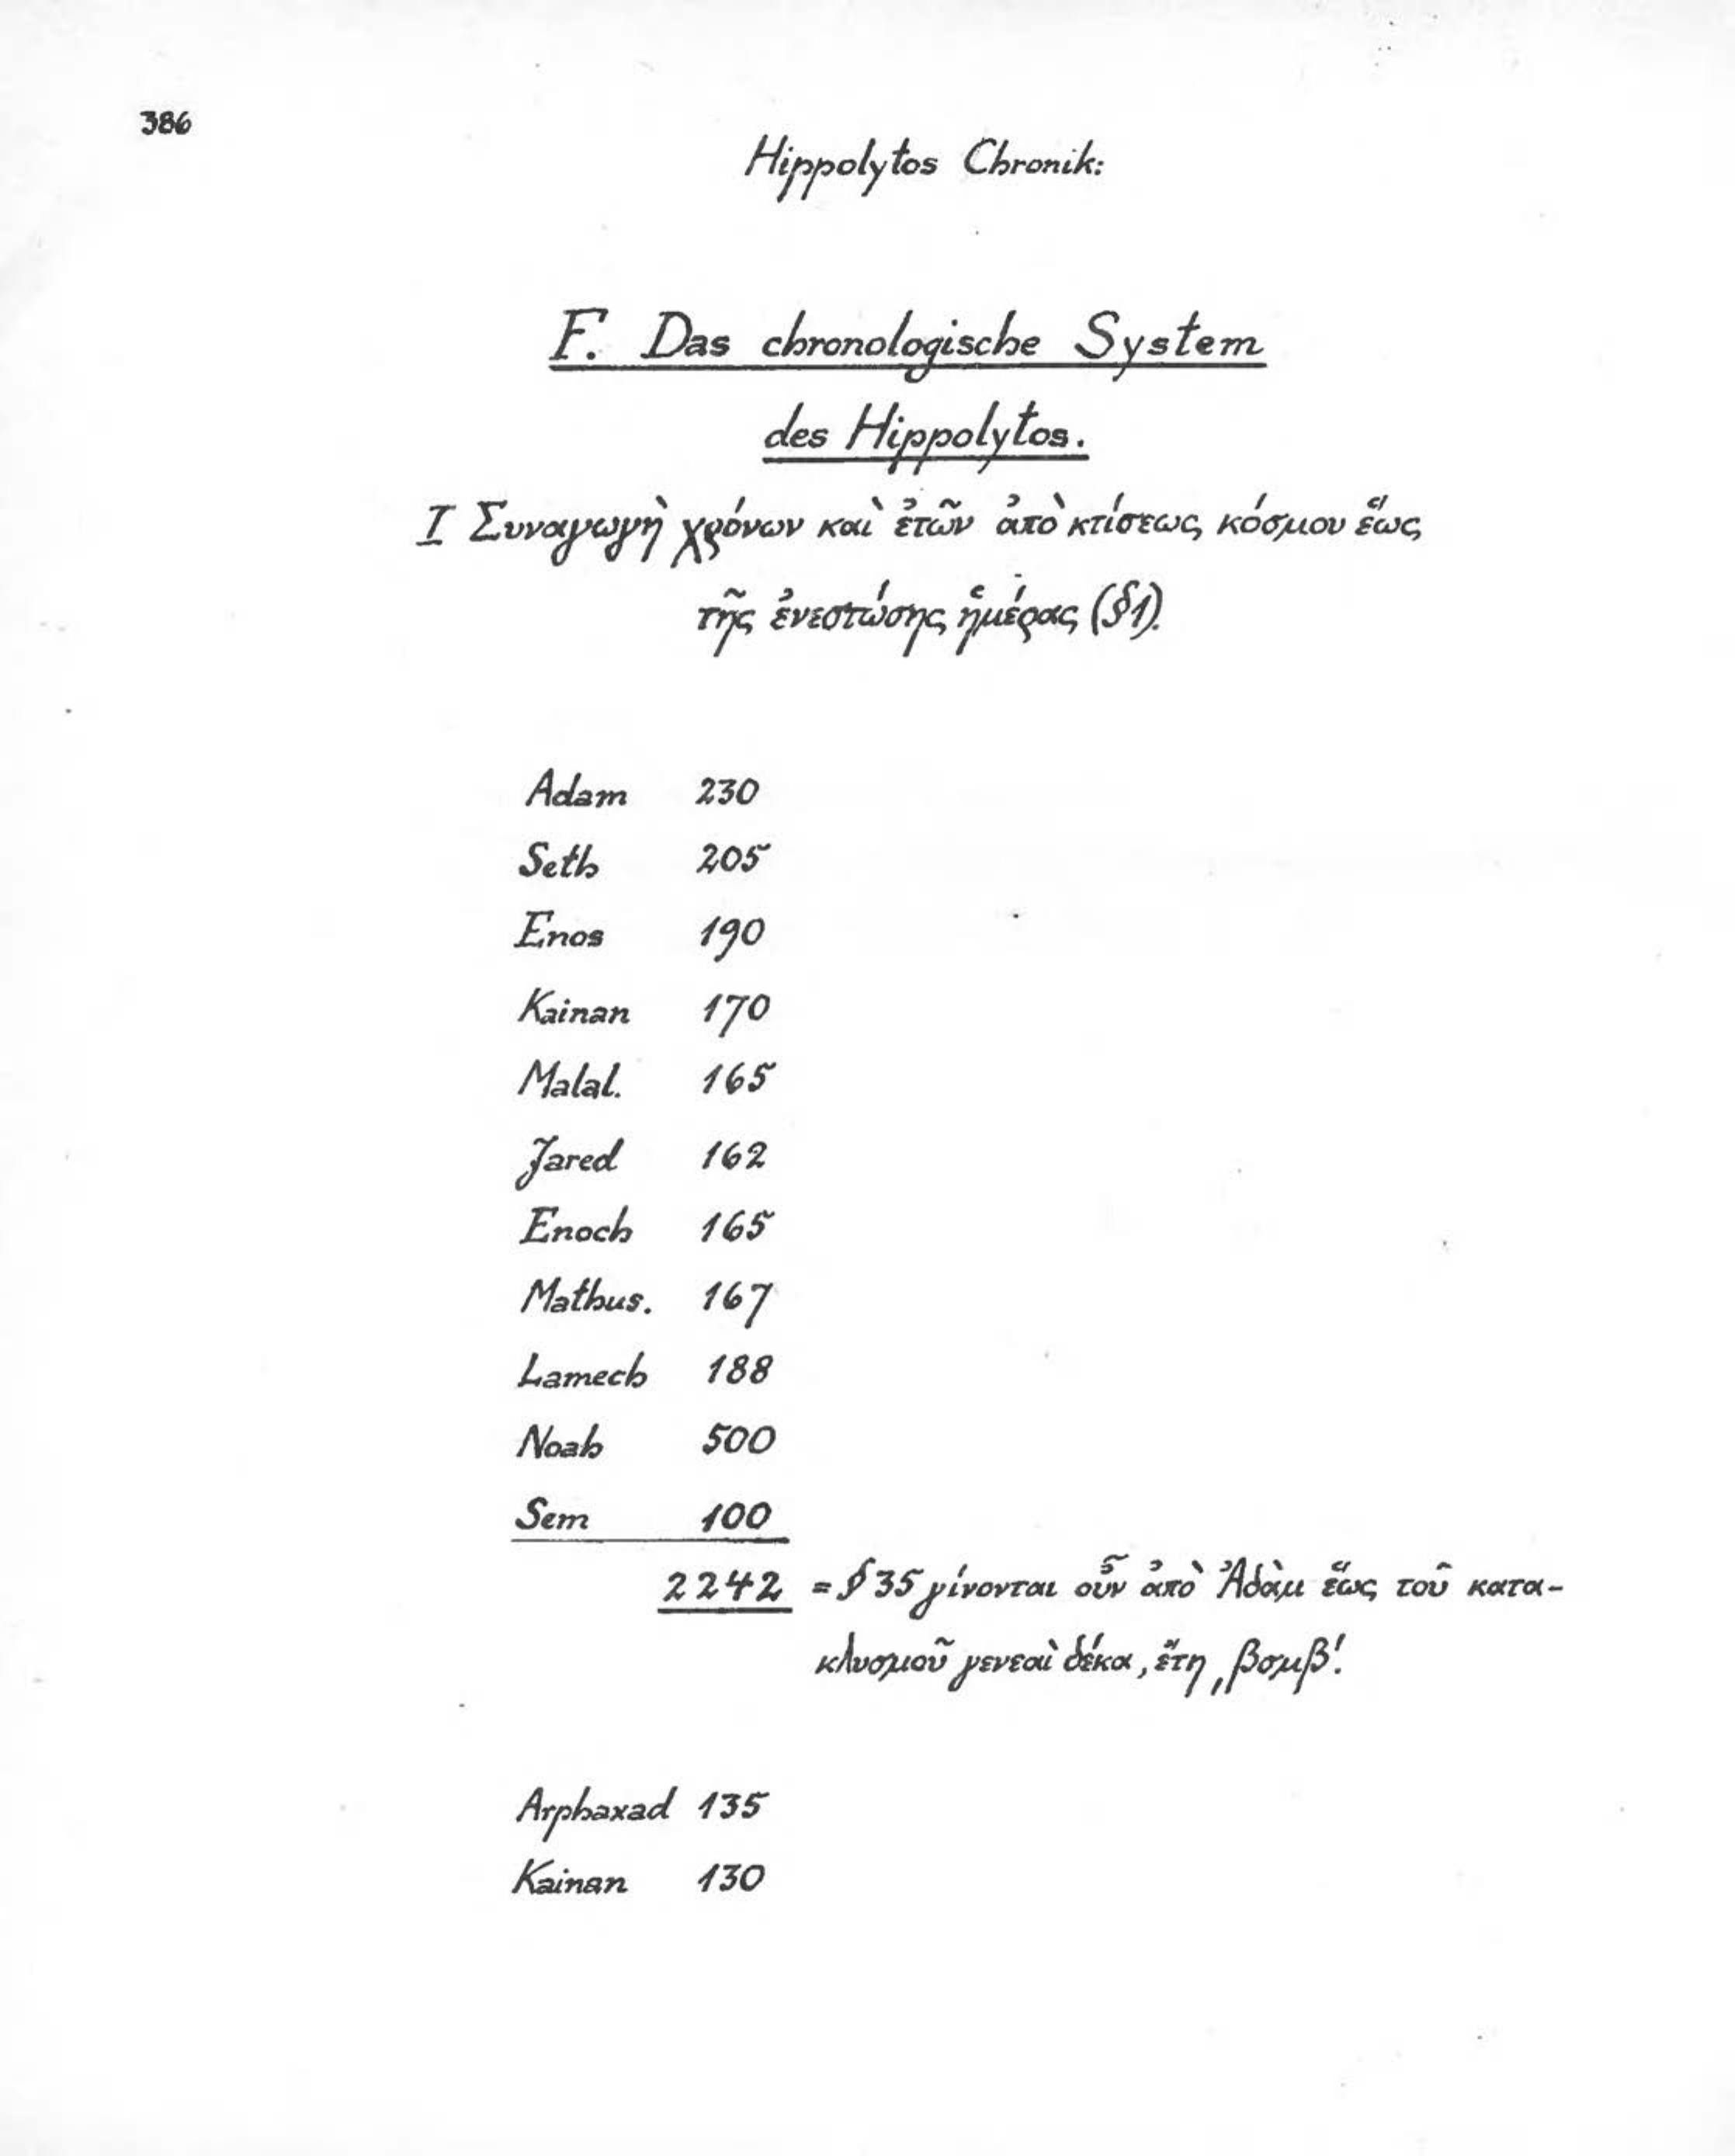 386
Hippolytos Chronik:
F. Das chronologische System
des Hippolytos.
I Συναγωγὴ χρόνων καὶ ἐτῶν ἀπὸ κτίσεως κόσμου ἕως
τῆς ἐνεστώσης ἡμέρας (§1).
Adam 230
Seth 205
Enos 190
Kainan 170
Malal. 165
Jared 162
Enoch 165
Mathus. 167
Lamech 188
Noah 500
Sem 100
2242 = § 35 γίνονται οὖν ἀπὸ Ἀδὰμ ἕως τοῦ κατα-
κλυσμοῦ γενεαὶ δέκα, ἔτη ͵βσμβ!
Arphaxad 135
Kainan 130